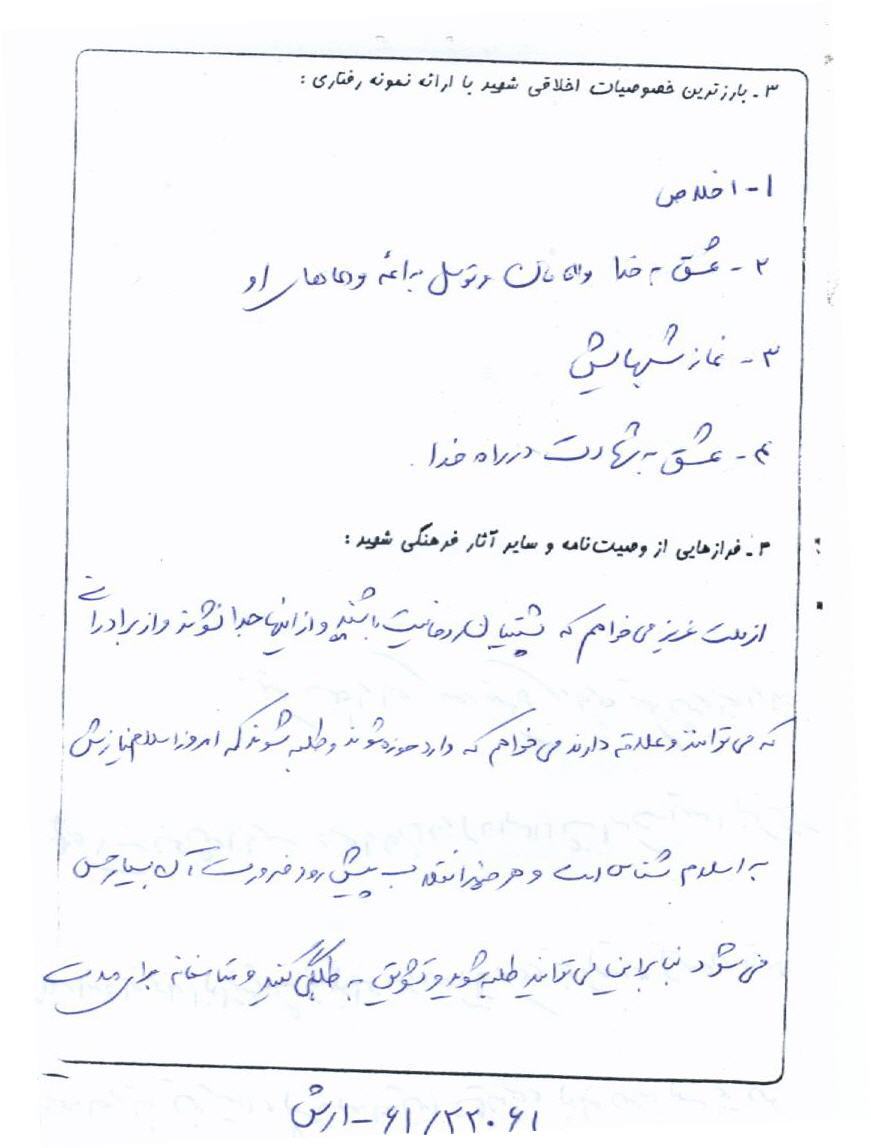 ۳ـ بارزترین خصوصیات اخلاقی شهید با ارائه نمونه رفتاری :
۱- اخلاص
۲- عشق به خدا و توسل به ائمه و دعاهای او
۳- نماز شبهایش
۴- عشق به شهادت در راه خدا .
۴ـ فرازهایی از وصیت‌نامه و سایر آثار فرهنگی شهید :
از ملت عزیز می خواهم که پشتیبان روحانیت باشند و از اینها جدا نشوند و از برادرانی
که می توانند و علاقه دارند می خواهم که وارد حوزه شوند و طلبه شوند که امروز اسلام نیازش
به اسلام شناس است و هر چقدر انقلاب پیش رود ضرورت آن بسیار حس
می شود بنابراین می توانید طلبه شوید و تشویق به طلبگی کنید و متاسفانه برای مدت
۶۱/۲۲۰۶۱-ارش